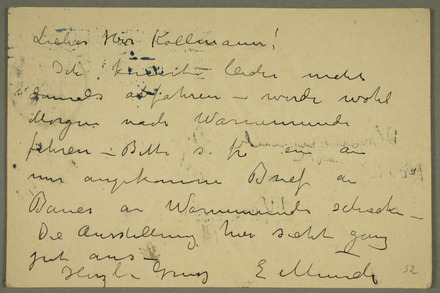 Lieber Herr Kollmann!
Ich konnte leider nicht
damals abfahren – werde wohl
Morgen nach Warnemünde
fahren – Bitte s. fr an
mir angekomme Brief an
Bauer an Warnemünde schicken –
Die Ausstellung hier sieht ganz
gut aus –
Herzl. Gruss E Munch
52